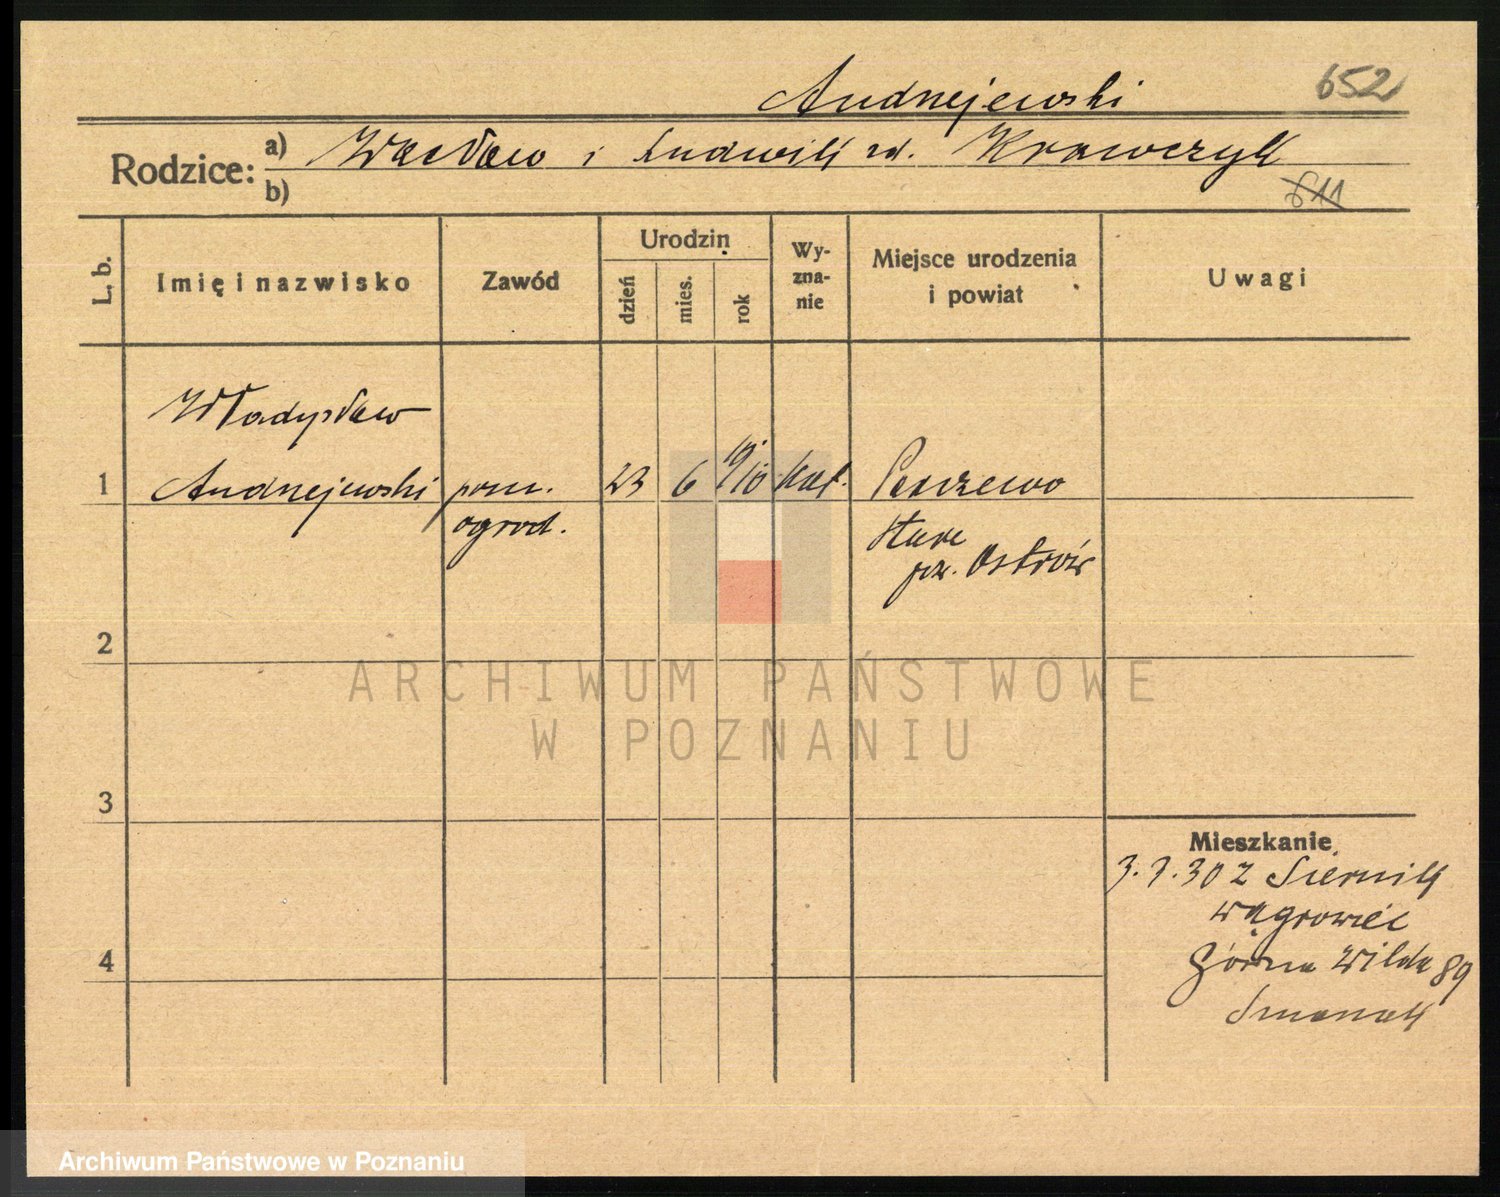 Andrzejewski 652
Rodzice: a) Wacław i Ludwik rd. Krawczyk
b)
811
L. b.
Imię i nazwisko
Zawód
Urodzin
dzień
mies.
rok
Wy-
zna-
nie
Miejsce urodzenia
i powiat
Uwagi
Władysław
1 Andrzejewski pom. 23 6 19/10 kat.
ogrod. Stare
pow. Ostrów
2
ARCHIWUM PAŃSTWOWE
W POZNANIU
3
Mieszkanie
3.7.30 z Siernik
Wągrowiec
4 Górna Wilda 89
Archiwum Państwowe w Poznaniu